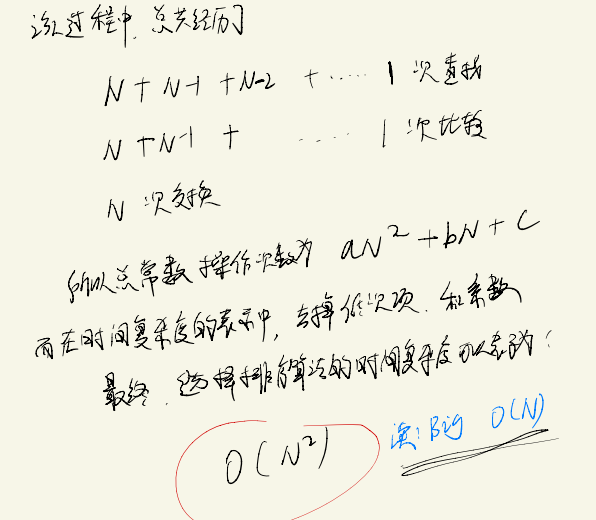 这过程中,总共经历了
N + N-1 + N-2 + ····· 1 次查找
N + N-1 + ····· 1 次比较
N 次交换
所以总常数操作次数为 aN² + bN + C
而在时间复杂度的表示中,去掉低次项.和系数
最终.选择排序算法的时间复杂度可以表示为:
O(N²)
读:Big O(N)